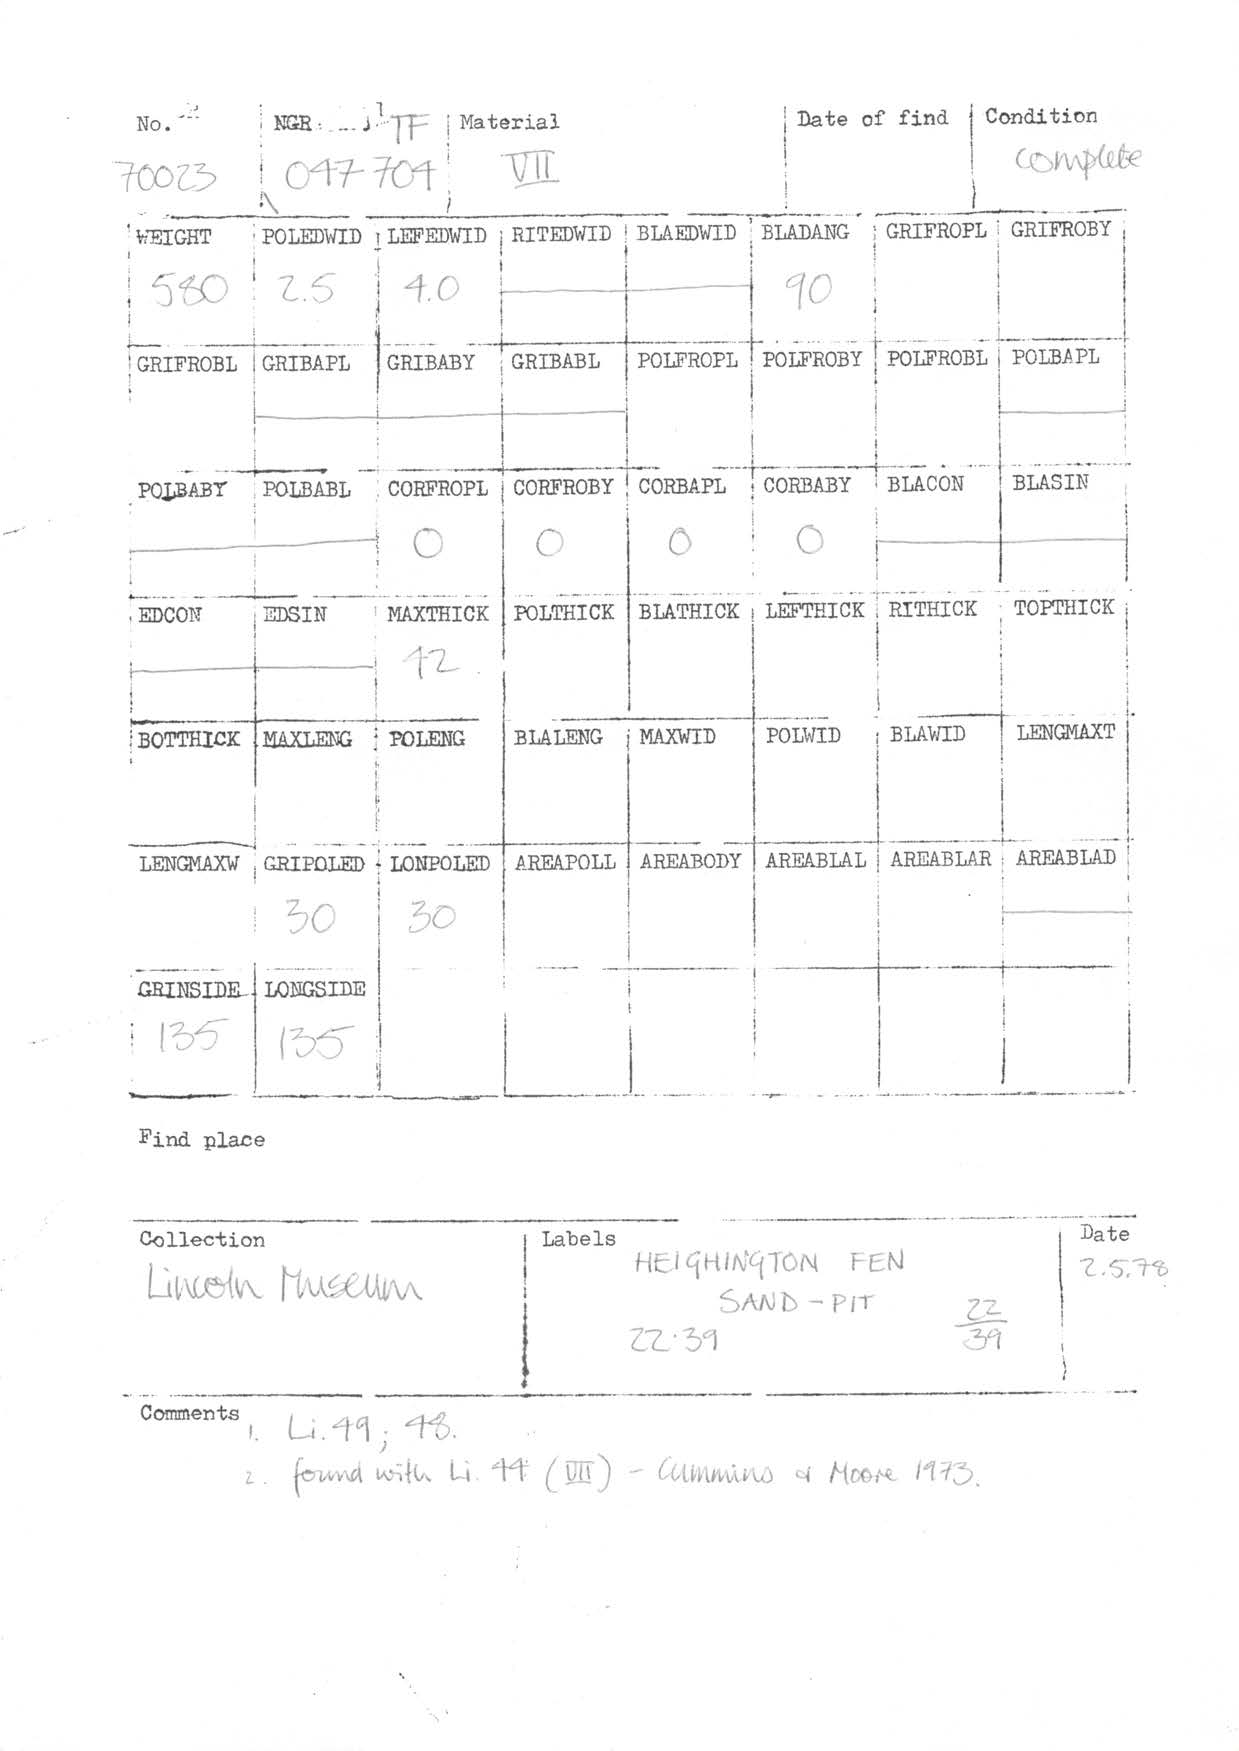 No. NGR TF Material Date of find Condition
70023 047 704 VII complete
WEIGHT POLEDWID LEFEDWID RITEDWID BLAEDWID BLADANG GRIFROPL GRIFROBY
580 2.5 4.0 90
GRIFROBL GRIBAPL GRIBABY GRIBABL POLFROPL POLFROBY POLFROBL POLBAPL
POLBABY POLBABL CORFROPL CORFROBY CORBAPL CORBABY BLACON BLASIN
0 0 0 0
EDCON EDSIN MAXTHICK POLTHICK BLATHICK LEFTHICK RITHICK TOPTHICK
42
BOTTHICK MAXLENG POLENG BLALENG MAXWID POLWID BLAWID LENGMAXT
LENGMAXW GRIPOLED LONPOLED AREAPOLL AREABODY AREABLAL AREABLAR AREABLAD
30 30
GRINSIDE LONGSIDE
135 135
Find place
Collection Labels Date
Lincoln Museum HEIGHINGTON FEN 2.5.78
SAND-PIT 22
22.39 39
Comments 1. Li.49; 48.
2. found with Li. 44 (VII) - Cummins & Moore 1973.